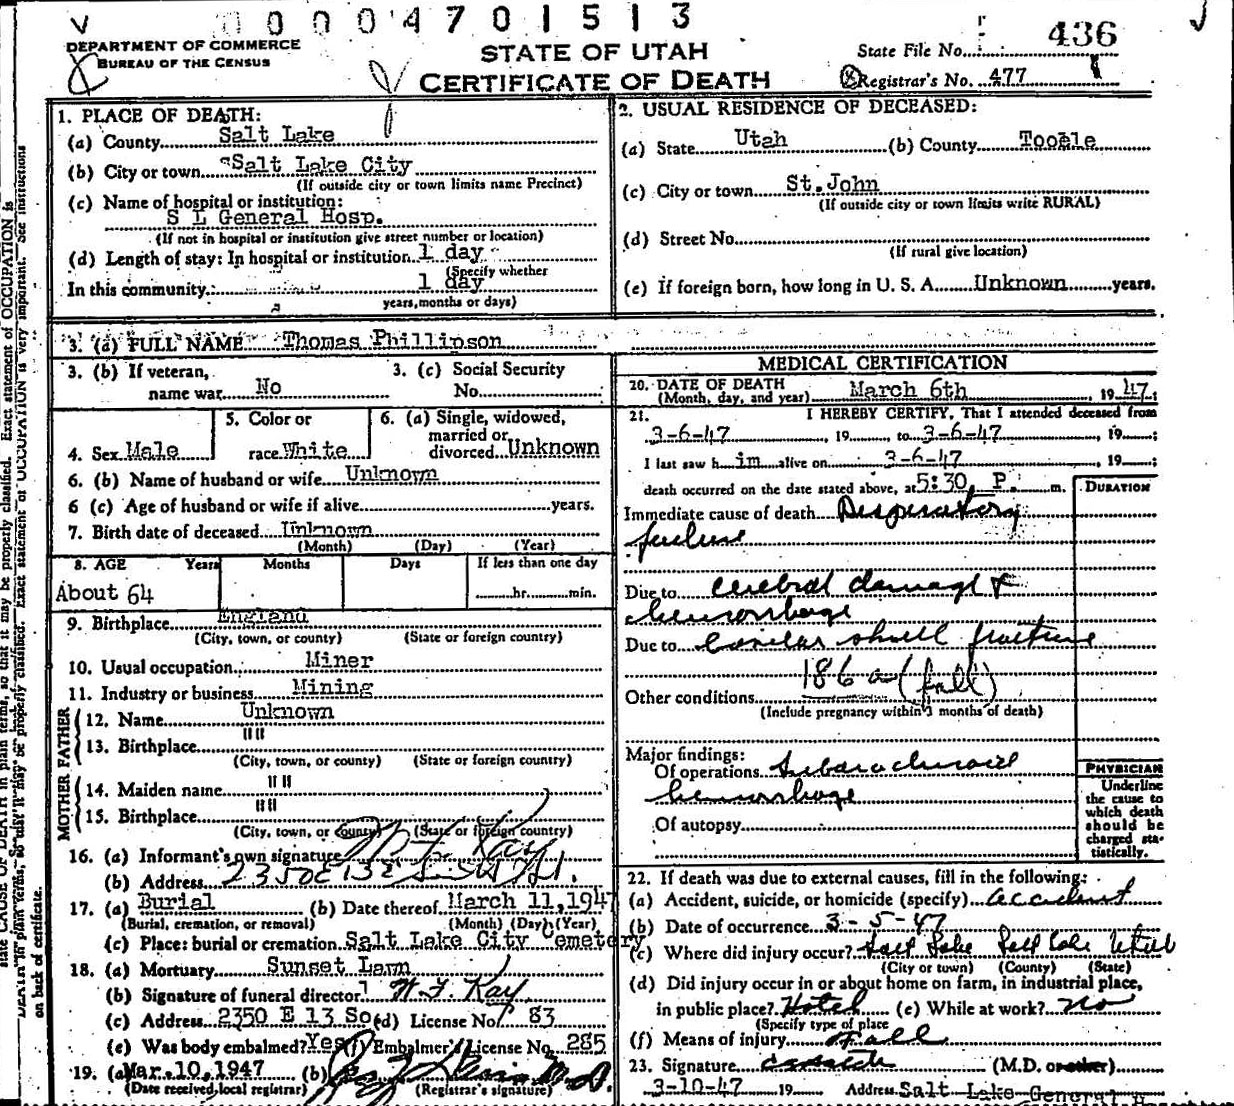 0000 4701513
DEPARTMENT OF COMMERCE
BUREAU OF THE CENSUS
STATE OF UTAH
CERTIFICATE OF DEATH
State File No. 436
Registrar's No. 477
1. PLACE OF DEATH:
(a) County Salt Lake
(b) City or town Salt Lake City
(If outside city or town limits name Precinct)
(c) Name of hospital or institution:
S L General Hosp.
(If not in hospital or institution give street number or location)
(d) Length of stay: In hospital or institution 1 day
(Specify whether
In this community 1 day
years, months or days)
2. USUAL RESIDENCE OF DECEASED:
(a) State Utah (b) County Tooele
(c) City or town St.John
(If outside city or town limits write RURAL)
(d) Street No.
(If rural give location)
(e) If foreign born, how long in U. S. A. Unknown years.
3. (a) FULL NAME Thomas Phillipson
3. (b) If veteran, name war No
3. (c) Social Security No.
4. Sex Male
5. Color or race White
6. (a) Single, widowed, married or divorced Unknown
6. (b) Name of husband or wife Unknown
6 (c) Age of husband or wife if alive years.
7. Birth date of deceased Unknown
(Month) (Day) (Year)
8. AGE Years Months Days If less than one day
About 64 hr. min.
9. Birthplace England
(City, town, or county) (State or foreign country)
10. Usual occupation Miner
11. Industry or business Mining
FATHER
12. Name Unknown
13. Birthplace " "
(City, town, or county) (State or foreign country)
MOTHER
14. Maiden name " "
15. Birthplace " "
(City, town, or county) (State or foreign country)
16. (a) Informant's own signature Kay
(b) Address 2350 E 13
17. (a) Burial (b) Date thereof March 11, 1947
(Burial, cremation, or removal) (Month) (Day) (Year)
(c) Place: burial or cremation Salt Lake City Cemetery
18. (a) Mortuary Sunset Lawn
(b) Signature of funeral director Kay
(c) Address 2350 E 13 So (d) License No. 83
(e) Was body embalmed? Yes (f) Embalmer's License No. 285
19. (a) Mar. 10, 1947 (b)
(Date received local registrar) (Registrar's signature)
MEDICAL CERTIFICATION
20. DATE OF DEATH
(Month, day, and year) March 6th 1947
21. I HEREBY CERTIFY, That I attended deceased from
3-6-47, 19, to 3-6-47 19 ;
I last saw him alive on 3-6-47, 19 ;
death occurred on the date stated above, at 5:30 P. m.
DURATION
Immediate cause of death Respiratory
failure
Due to cerebral damage &
hemorrhage
Due to skull fracture
186 a (fall)
Other conditions
(Include pregnancy within 3 months of death)
Major findings:
Of operations Subarachnoid
hemorrhage
Of autopsy
PHYSICIAN
Underline
the cause to
which death
should be
charged sta-
tistically.
22. If death was due to external causes, fill in the following:
(a) Accident, suicide, or homicide (specify) accident
(b) Date of occurrence 3-5-47
(c) Where did injury occur? Salt Lake Salt Lake Utah
(City or town) (County) (State)
(d) Did injury occur in or about home on farm, in industrial place,
in public place? Hotel (e) While at work? no
(Specify type of place
(f) Means of injury Fall
23. Signature (M.D. or other)
3-10-47 19 Address Salt Lake General
state CAUSE OF DEATH in plain terms, so that it may be properly classified. Exact statement of OCCUPATION is very important. See instructions
on back of certificate.